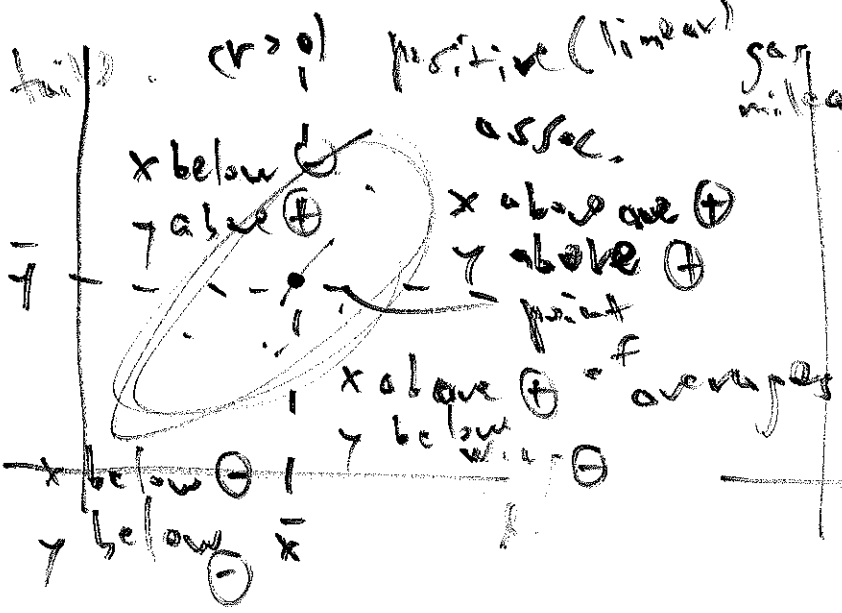 (r > 0) positive (linear)
assoc.
gas
x below ⊖
y above ⊕
x above ave ⊕
y above ⊕
ȳ
point
of
averages
x above ⊕
y below ⊖
x below ⊖
y below ⊖
x̄